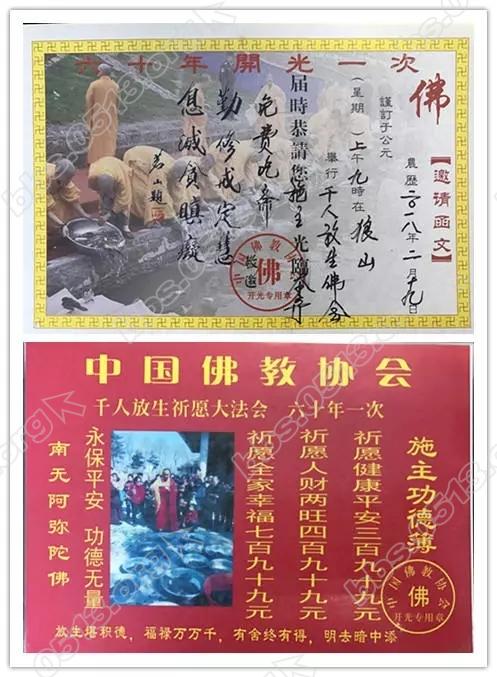 六十年開光一次
佛
【邀请函文】
謹訂于公元
農歷二〇一八年二月十九日
(星期 )上午九時在狼山
舉行千人放生佛会
届時恭請您施主光臨
免费吃斋
敬邀
勤修戒定慧
息滅貪瞋癡
茗山題
中国佛教协会
佛
开光专用章
中国佛教协会
千人放生祈愿大法会 六十年一次
施主功德薄
祈愿健康平安三百九十九元
祈愿人财两旺四百九十九元
祈愿全家幸福七百九十九元
永保平安 功德无量
南无阿弥陀佛
中国佛教协会
佛
开光专用章
放生堪积德，福禄万万千，有舍终有得，明去暗中添
bbs.0513.org